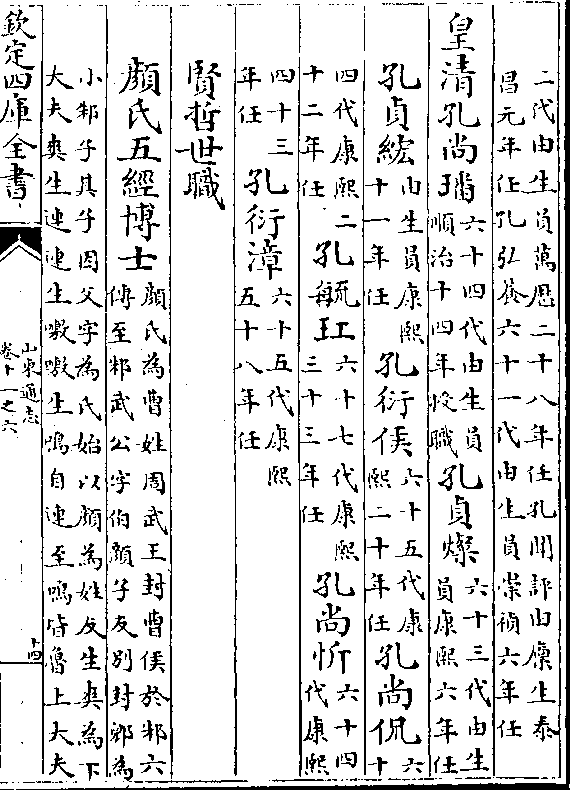 二代由生員萬厯二十八年任孔聞評由廩生泰
昌元年任孔弘養六十一代由生員崇禎六年任
皇清孔尚璠六十四代由生員順治十四年授職孔貞燦六十三代由生員康熙六年任
孔貞綋由生員康熙十一年任孔衍侯六十五代康熙二十年任孔尚侃六十
四代康熙二十二年任孔毓六十七代康熙三十三年任孔尚忻六十四代康熙
四十三年任孔衍漳六十五代康熙五十八年任
賢哲世職
顔氏五經博士顔氏為曹姓周武王封曹侯於邾六傳至邾武公字伯顔子友别封郳為
小邾子其子因父字為氏始以顔為姓友生爽為下
大夫爽生連連生噭噭生鳴自連至鳴皆魯上大夫
欽定四庫全書
山東通志
卷十一之六
十四